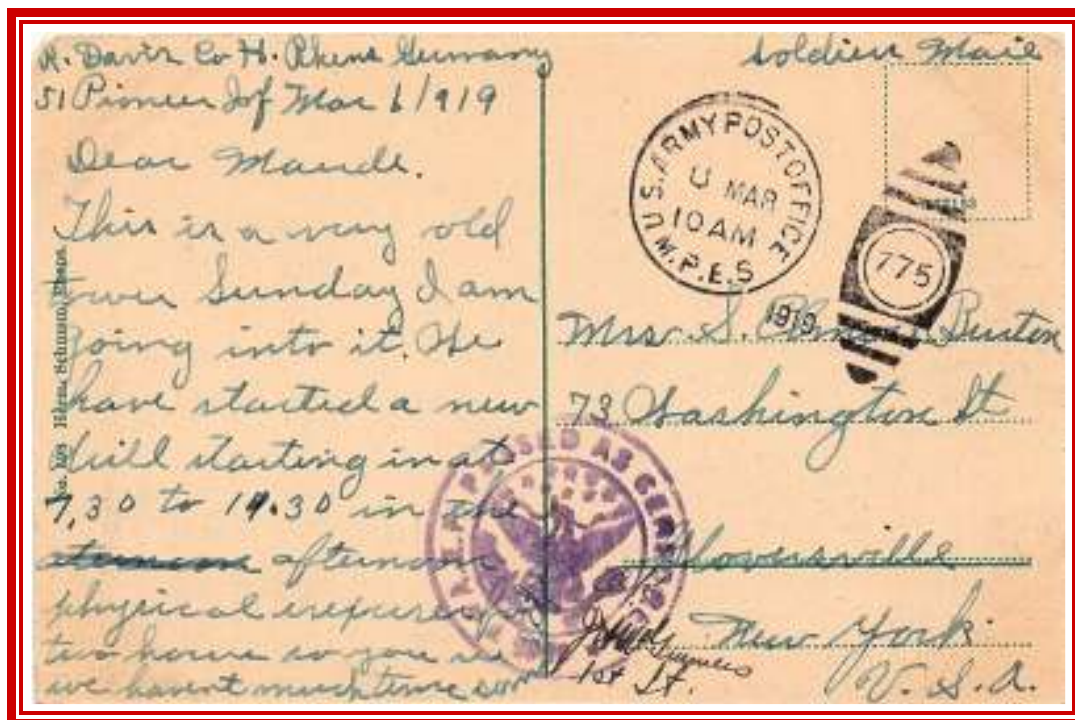 R. Davis Co H. Rhens Germany
51 Pioneer Inf Mar 6/1919
Dear Maude.
This is a very old
tower Sunday I am
going into it. We
have started a new
drill starting in at
7,30 to 11.30 in the
afternoon
physical
two hours so you see
we havent much time
No. Rhens
Soldiers Mail
U.S. ARMY POST OFFICE
MAR
10 AM
M.P.E.S
1919
775
Mrs. S. Burton
73 Washington St
Gloversville
New York
U. S. A.
A.E.F. PASSED AS CENSORED
1st Lt.